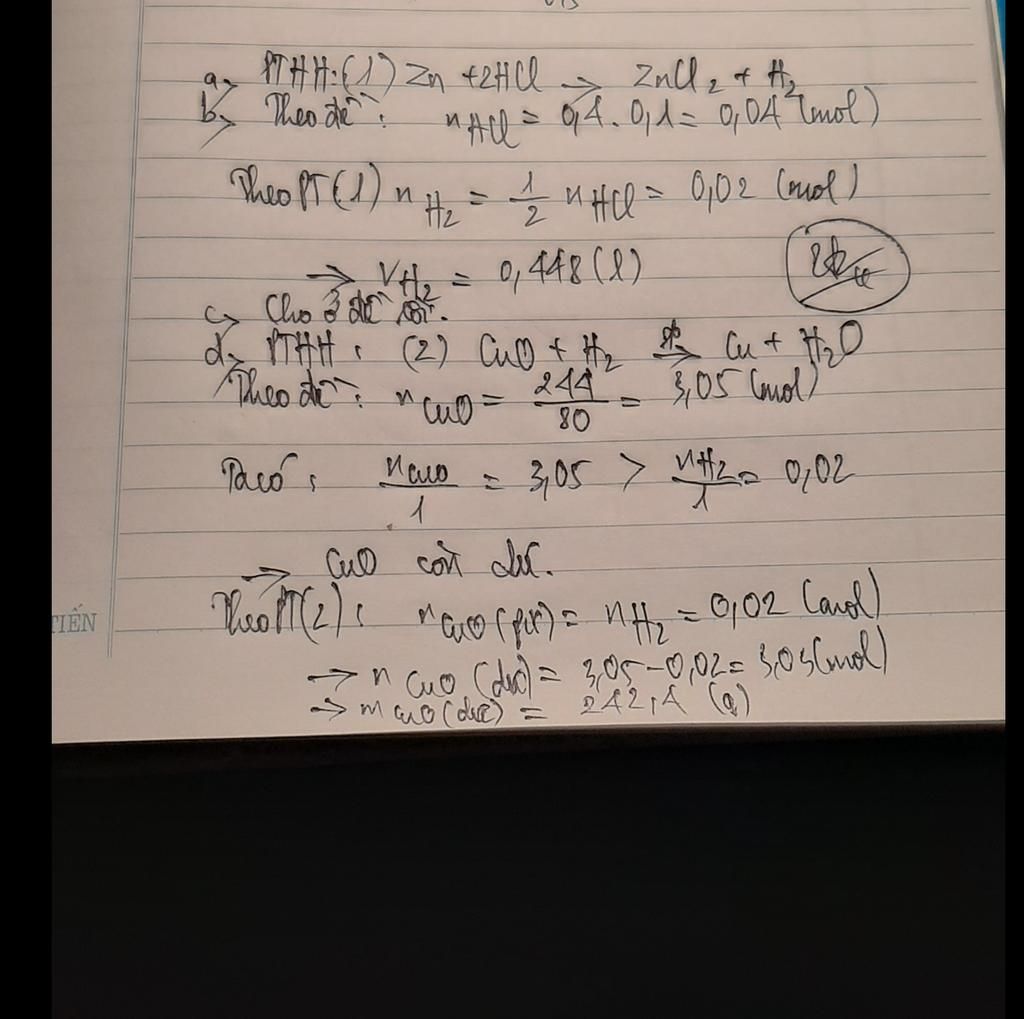 a, PTHH: (1) Zn + 2HCl → ZnCl₂ + H₂
b, Theo đề: nHCl = 0,4 . 0,1 = 0,04 (mol)
Theo PT(1) nH₂ = 1/2 nHCl = 0,02 (mol)
→ VH₂ = 0,448 (l)
c, Cho ở đề rồi.
d, PTHH: (2) CuO + H₂ → Cu + H₂O
Theo đề: nCuO = 244/80 = 3,05 (mol)
Ta có: nCuO/1 = 3,05 > nH₂/1 = 0,02
→ CuO còn dư.
TIẾN
Theo PT(2): nCuO (pư) = nH₂ = 0,02 (mol)
→ nCuO (dư) = 3,05 - 0,02 = 3,03 (mol)
→ mCuO (dư) = 242,4 (g)